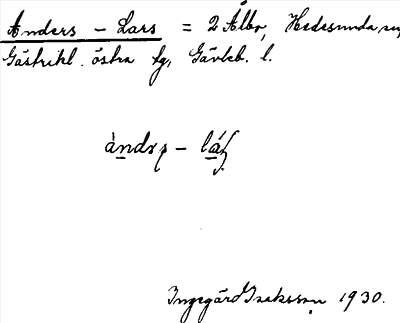 Anders - Lars = 2 Älbo, Hedesunda sn,
Gästrikl. östra tg, Gävleb. l.
àndʂ - láʂ
Ingegärd Isaksson 1930.